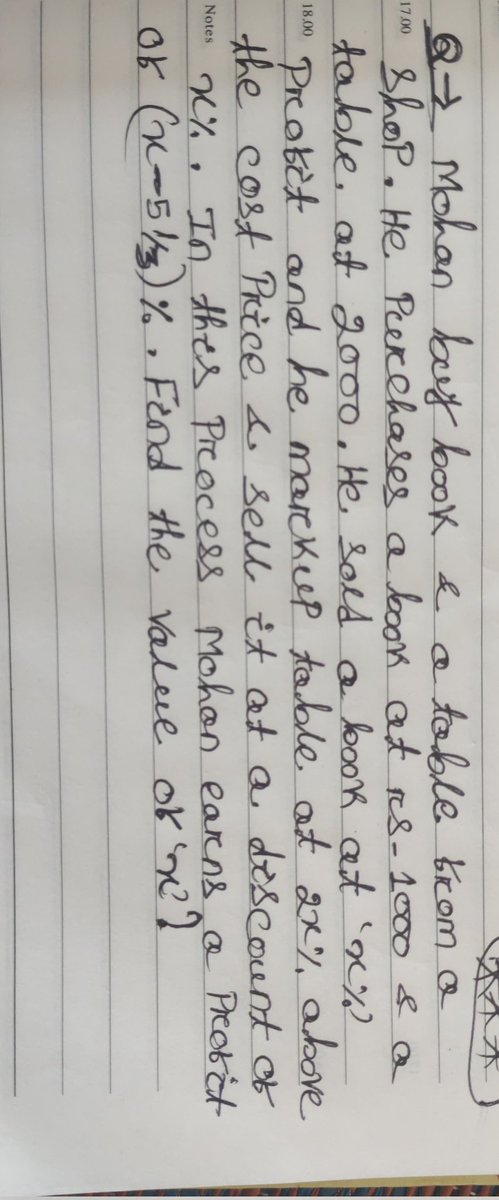 ***
Q→ Mohan buy book & a table from a
17.00 shop. He Purchases a book at rs-1000 & a
table at 2000. He sold a book at 'x%'
18.00 Profit and he markup table at 2x% above
the cost Price & sell it at a discount of
Notes x%. In this Process Mohan earns a Profit
of (x-5 1/3)%. Find the value of 'x'?